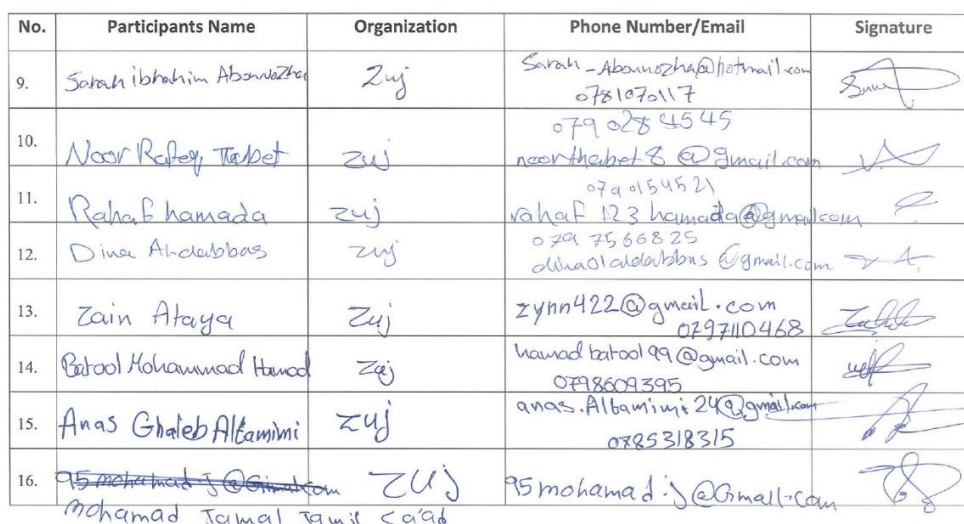 No. Participants Name Organization Phone Number/Email Signature
9. Sarah ibrahim Abounozha Zuj Sarah_Abounozha@hotmail.com
0781070117
079 028 4545
10. Noor Rafeq Thabet zuj noorthabet8@gmail.com
0790154521
11. Rahaf hamada zuj rahaf123hamada@gmail.com
079 7566825
12. Dina Aldabbas zuj dina01aldabbas@gmail.com
13. Zain Ataya Zuj zynn422@gmail.com
0797110468
14. Batool Mohammad Hamad Zuj hamadbatool99@gmail.com
0798609395
15. Anas Ghaleb Altamimi zuj anas.Altamimi24@gmail.com
0785318315
16. 95mohamad.j@Gimal.com ZUJ 95mohamad.j@Gmail.com
Mohamad Jamal Jamil